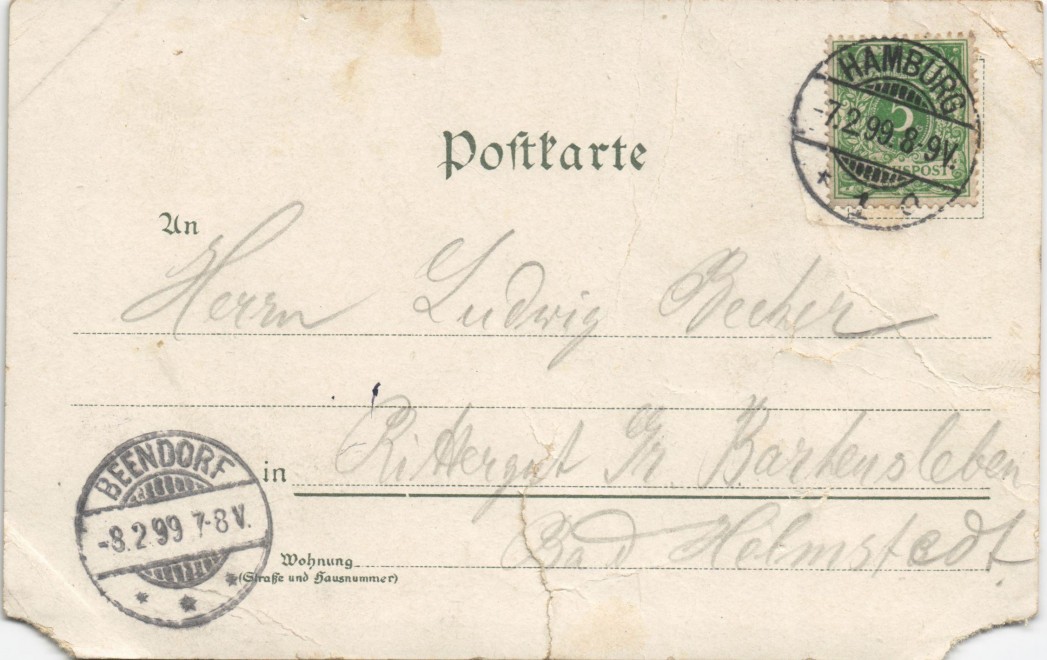 HAMBURG
-7.2.99.8-9V.
* 1
5
Postkarte
An
Herrn Ludwig Becher
in Rittergut Gr. Bartensleben
Wohnung Bad Helmstedt
(Straße und Hausnummer)
BEENDORF
-8.2.99 7-8 V.
* * *